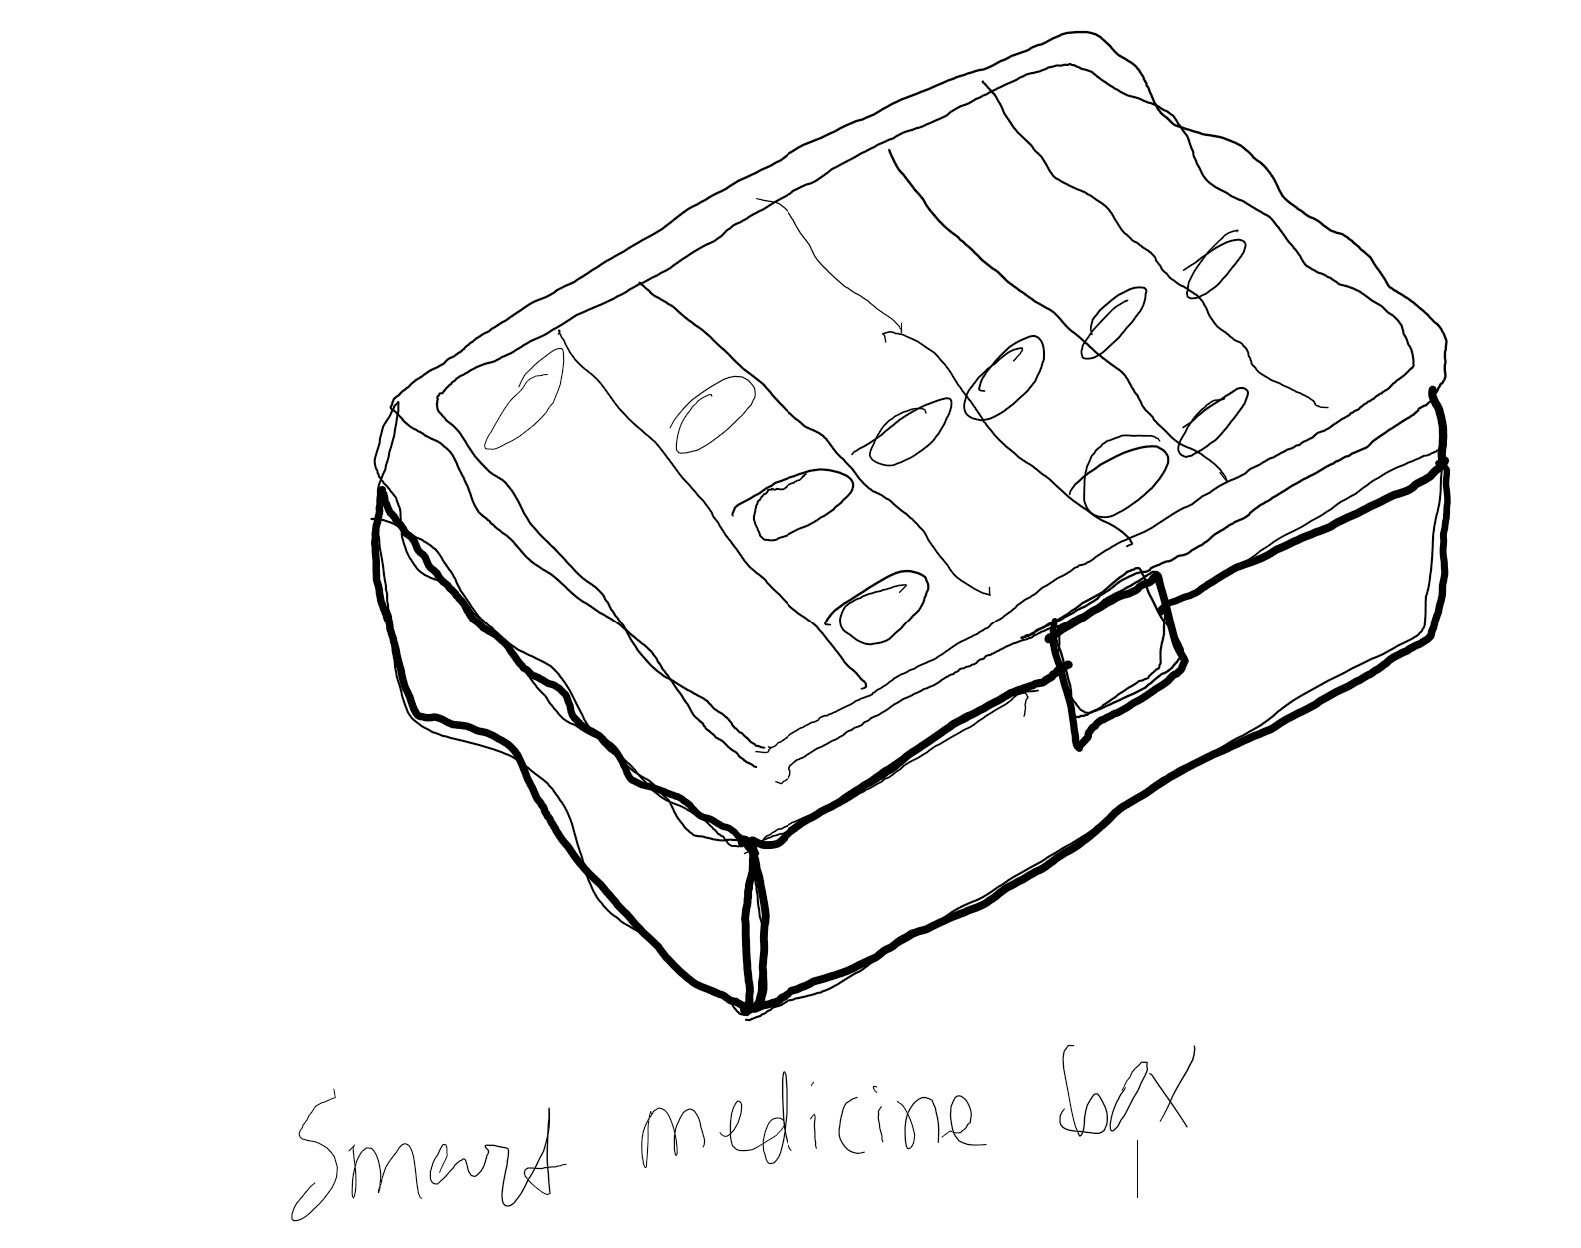 Smart medicine box